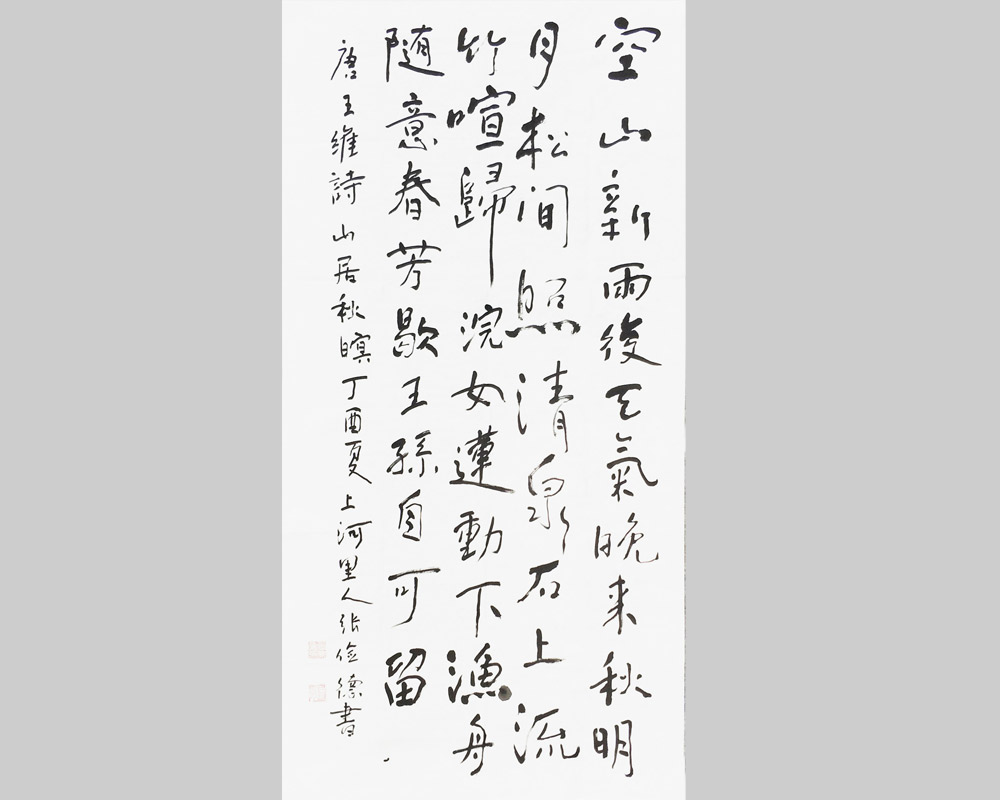 空山新雨後天氣晚来秋明
月松间照清泉石上流
竹喧歸浣女蓮動下漁舟
随意春芳歇王孫自可留
唐王維詩山居秋暝丁酉夏上河里人张俭德書